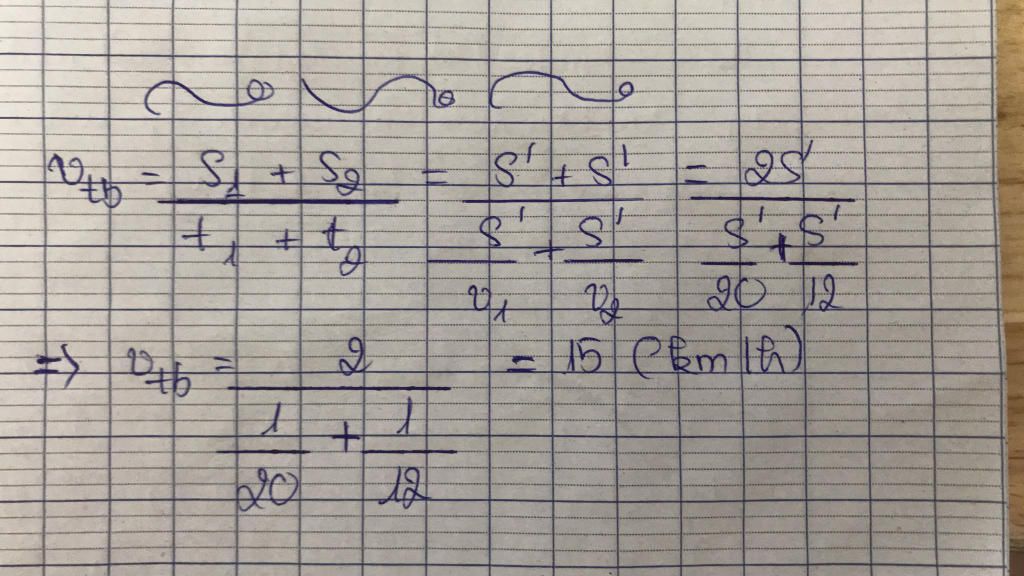 v_tb = (S_1 + S_2)/(t_1 + t_2) = (S' + S')/(S'/v_1 + S'/v_2) = 2S'/(S'/20 + S'/12)
=> v_tb = 2/(1/20 + 1/12) = 15 (km/h)